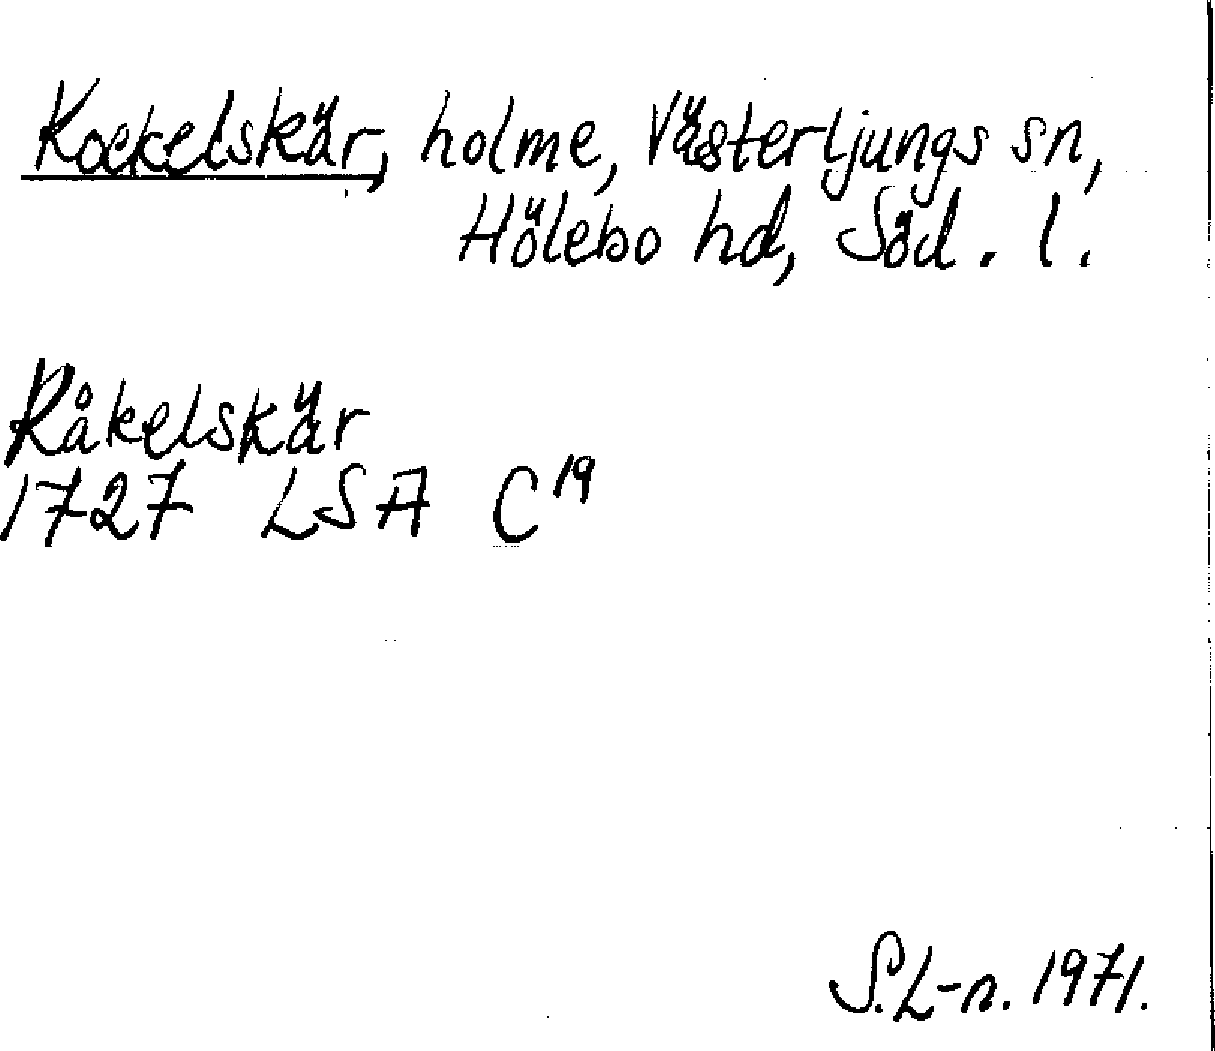 Kockelskär, holme, Västerljungs sn,
Hölebo hd, Söd. l.
Råkelskär
1727 LSA C 19
S.L-n. 1971.